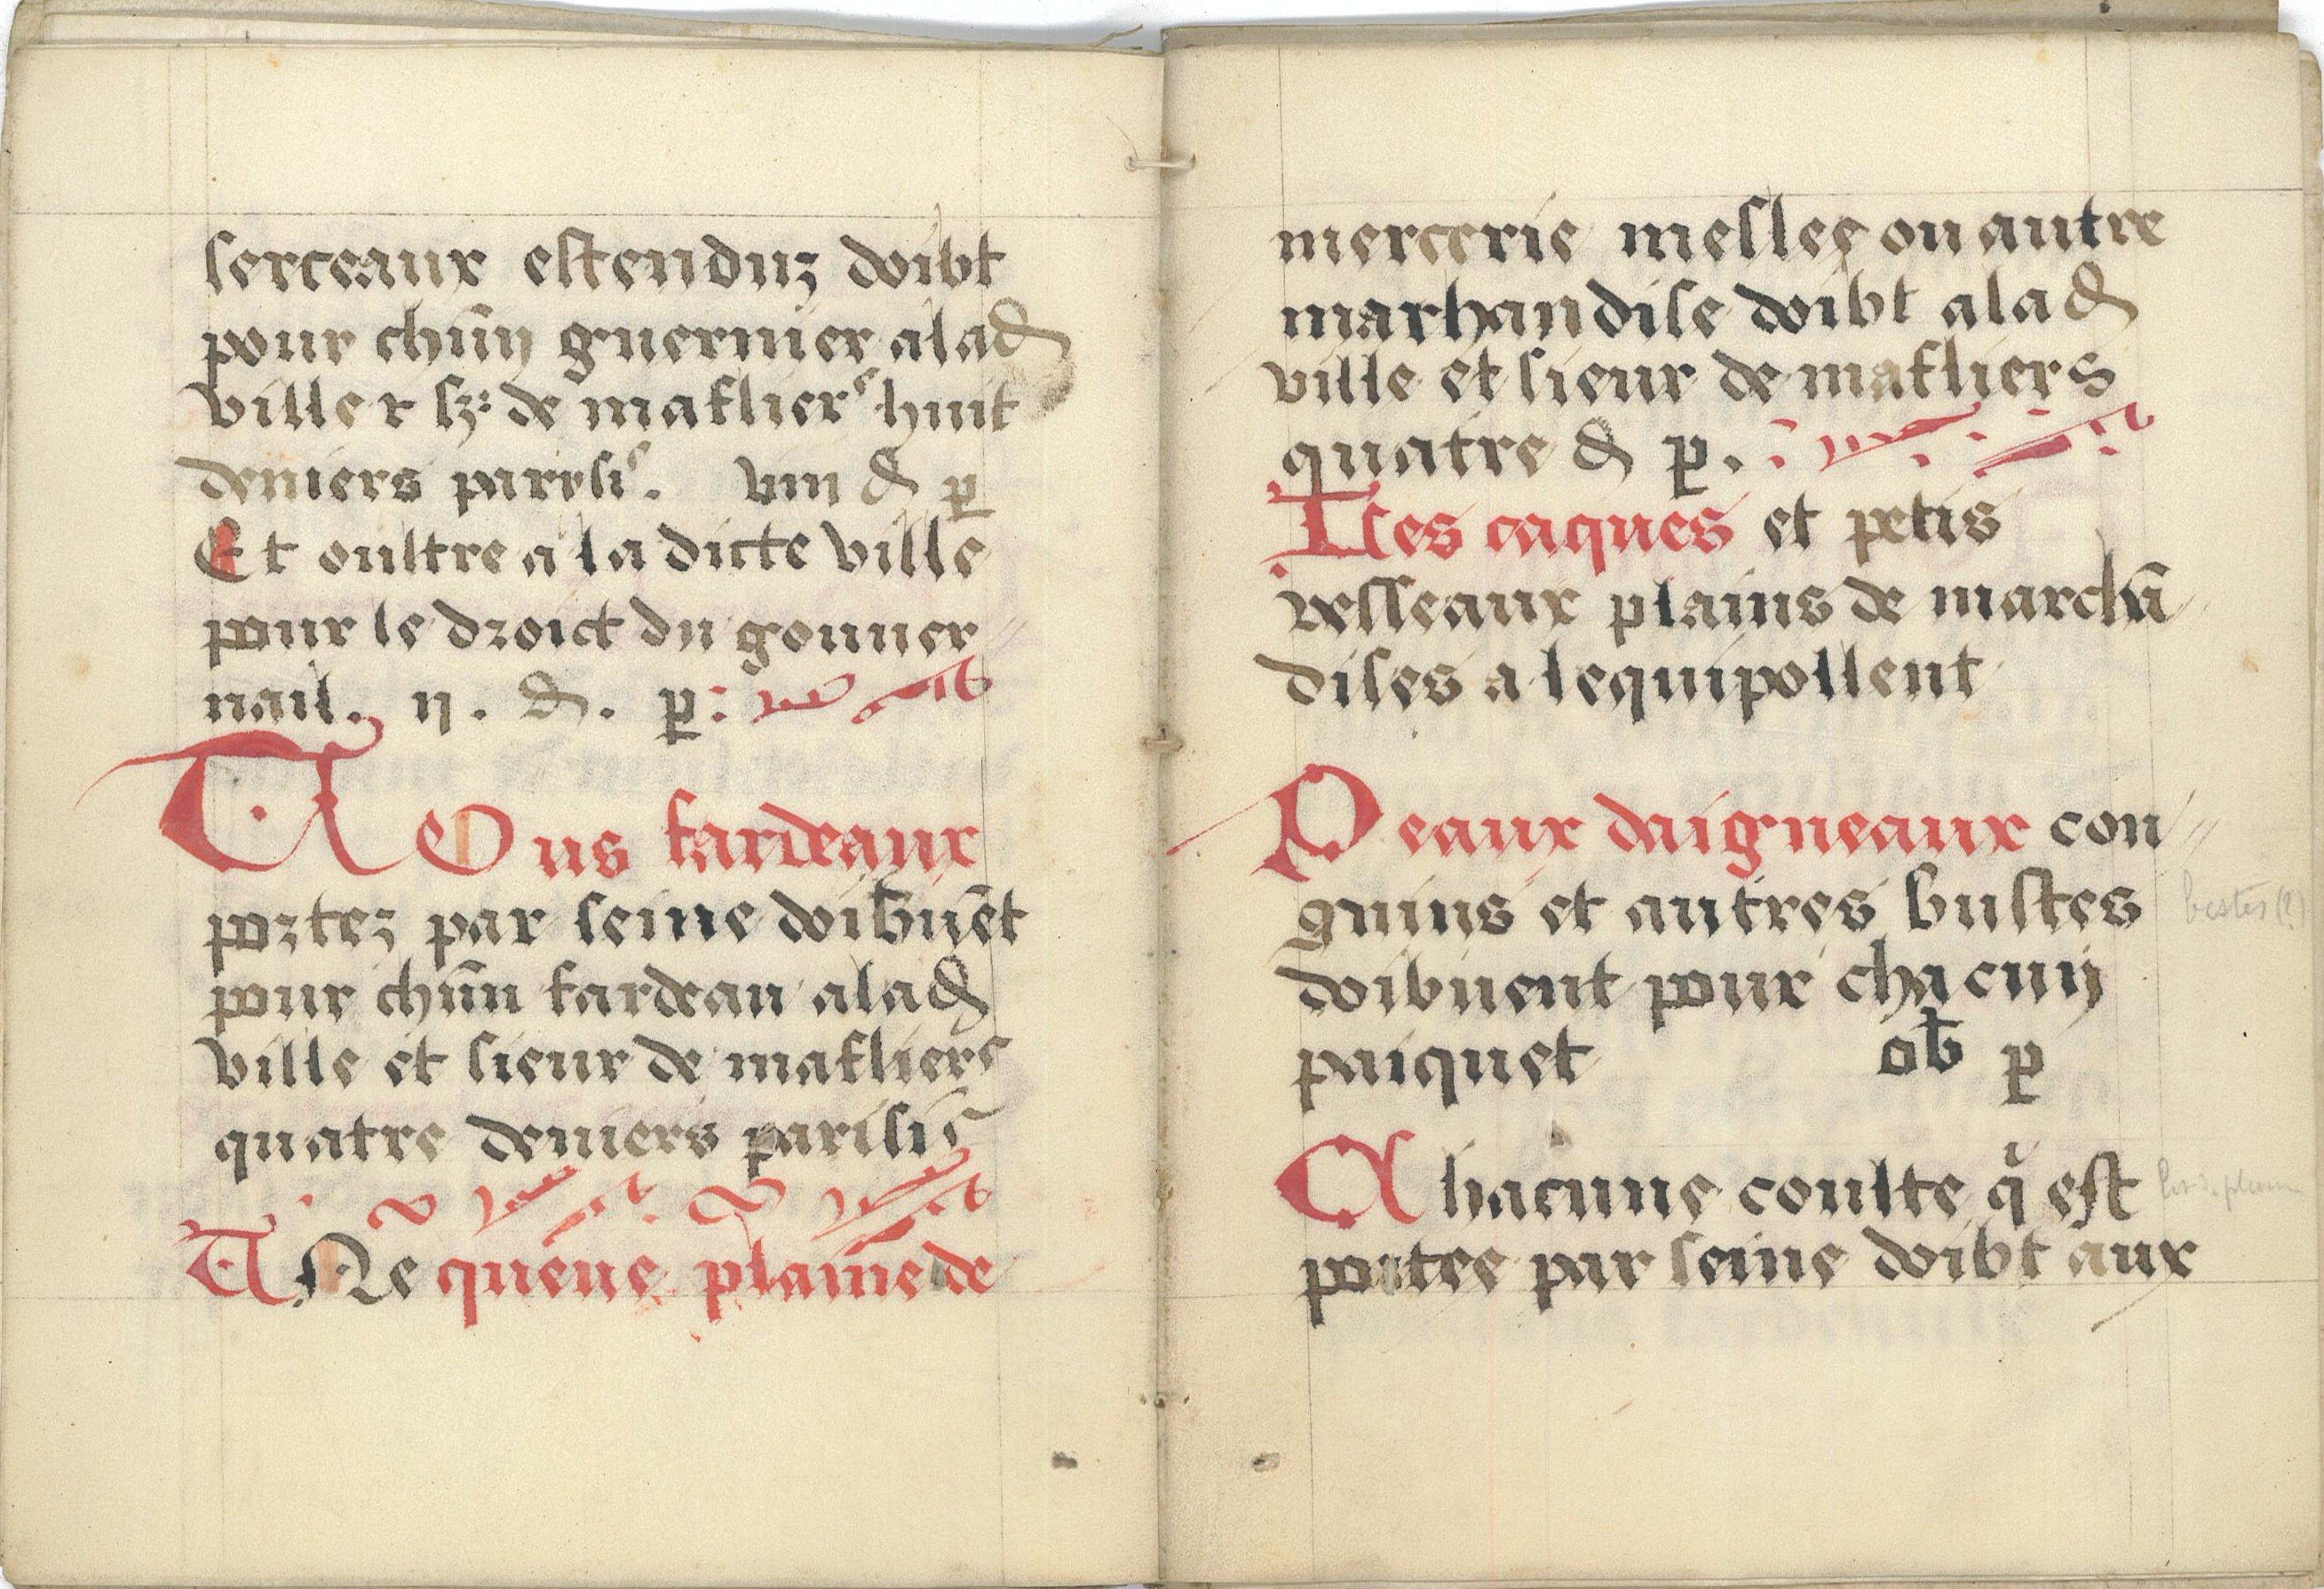 serceaux estenduz doibt
pour chūn guernier a lad
ville et sr de maslierˢ huit
deniers parisiˢ. viii d p
Et oultre a la dicte ville
pour le droict du gouuer
nail. ii. d. p
TOus fardeaux
portez par seine doibuēt
pour chūn fardeau a lad
ville et sieur de masliers
quatre deniers parisis
VNe queue plaine de
mercerie meslee ou autre
marhandise doibt a la d
ville et sieur de masliers
quatre d p.
Les caques et petis
vesseaux plains de marchā
dises a lequipollent
Peaux daigneaux con
guins et autres bustes
bestes (?)
doibuent pour chacun
paiquet ob p
Chacune coulte q̄ est
portee par seine doibt aux